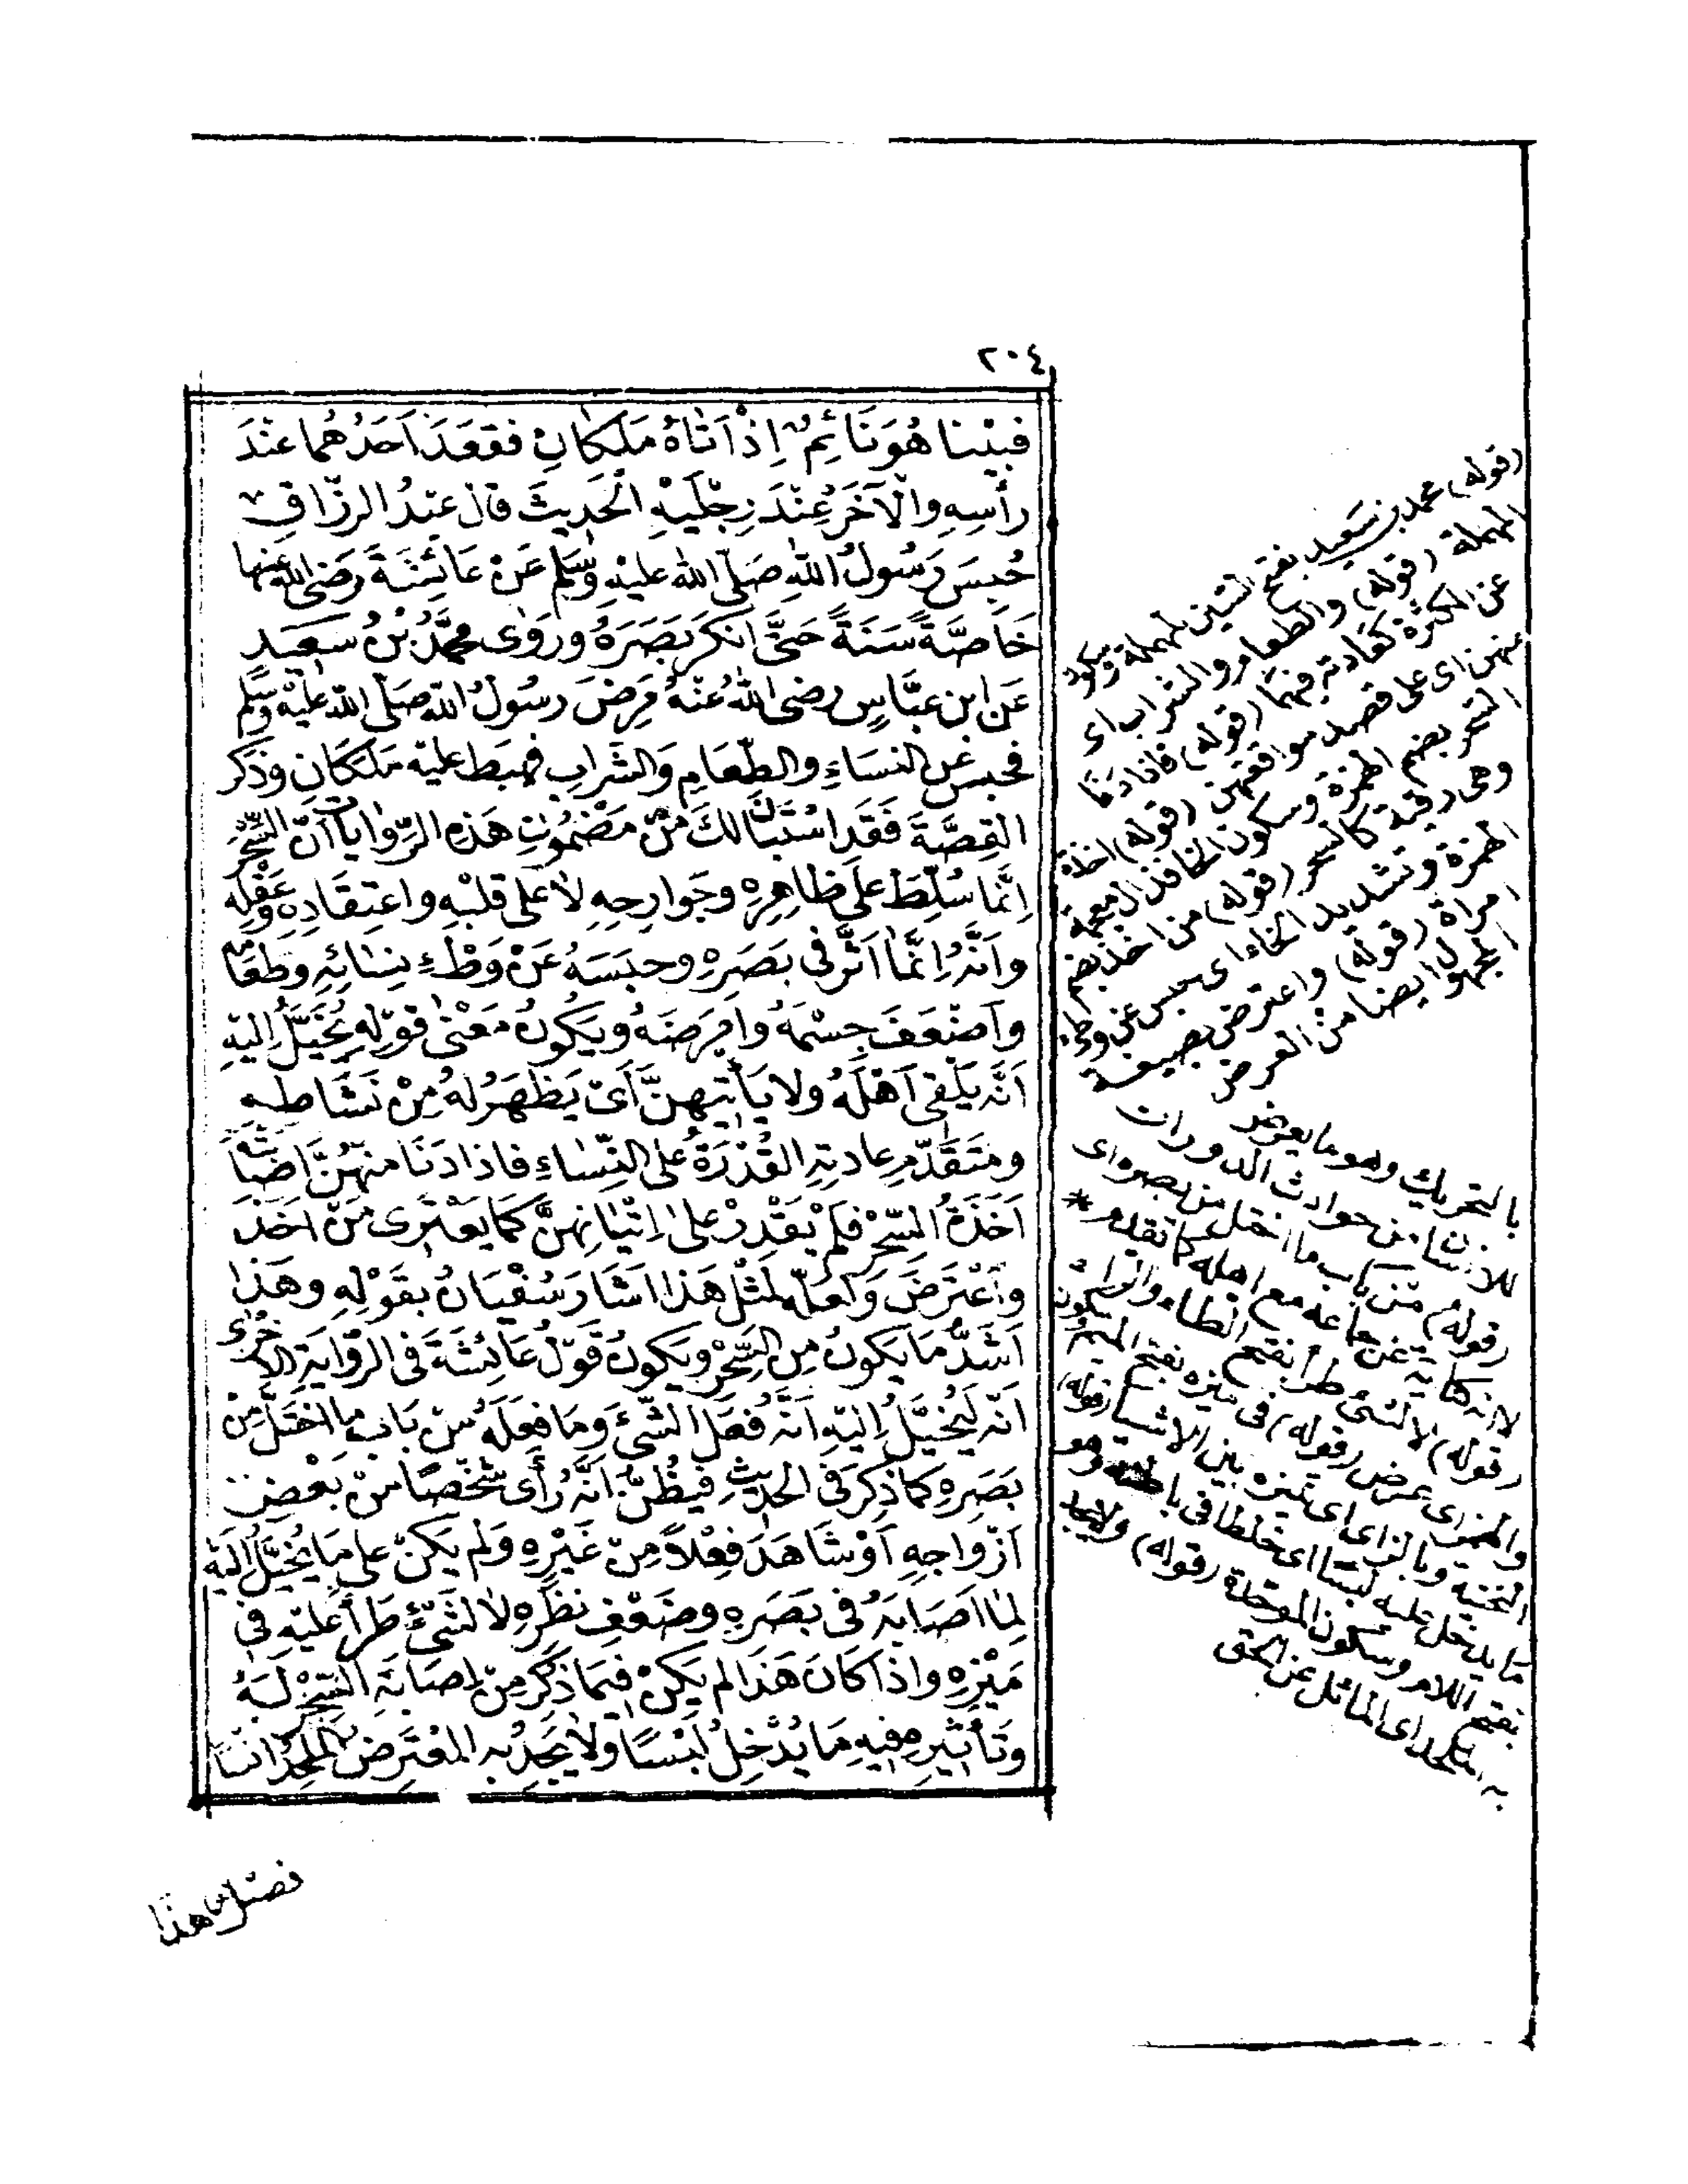 ٢٠٤
فبَيْنا هُوَ نَائِمٌ اِذْ اَتَاهُ مَلَكَانِ فقعَدَ اَحَدُهُما عنْدَ
رأسِهِ والْآخَرُ عِنْدَ رِجْلَيْهِ الْحَدِيثَ قال عبْدُ الرزّاق
حُبِسَ رَسُولُ اللهِ صَلّى الله عليْهِ وسَلم عَنْ عَائِشَةَ رَضى الله عنها
خَاصَّةً سَنَةً حَتَّى انكَرَ بَصَرَهُ ورَوَى محمَّدُ بْنُ سعَيد
عَن ابن عبَّاسٍ رضى الله عنْهُ مَرِضَ رسُولُ الله صَلّى الله عليْهِ وسلم
فحبسَ عن النسَاءِ والطّعَامِ وَالشرَابِ فهبَط عليْهِ ملَكَانِ وذَكَر
القِصَّةَ فَقَد اسْتَبَانَ لكَ مِنْ مَضْمُونِ هَذه الرّوَاياتِ اَنّ السّحْرَ
اِنَّمَا سُلِّطَ علَى ظاهِرِهِ وجَوارِحِهِ لَا على قلبْهِ واعتِقَادِهِ وعَقْلِهِ
وَاَنَّهُ اِنَّمَا اَثَّرَ فى بَصَرِهِ وحبَسَهُ عَنْ وَطْءِ نِسَائِهِ وطَعَامِهِ
وَاَضْعَفَ جِسْمَهُ وَاَمْرَضَهُ ويَكُونُ مَعْنى قوْلِهِ يُخَيَّلُ اِليْهِ
اَنّهُ يَأْتى اَهْلَهُ ولا يَأْتيهِنَّ اَىْ يَظهَرُ لهُ مِنْ نَشَاطِهِ
ومُتَقَدّمِ عادتِهِ القُدْرَةُ على النِّسَاءِ فاذا دَنَا منهُنَّ اَصَابَتْهُ
اَخْذَةُ السِّحْرِ فلَمْ يَقْدِرْ علَى اِتْيَانِهِنَّ كَمَا يعْتَرِى مَنْ اُخِّذَ
وَاعْتُرِضَ وَلَعلّهُ لِمثْلِ هَذا اَشَارَ سُفْيَانُ بقَوْلِهِ وهَذا
اَشَدُّ مَا يَكُونُ مِن السِّحْرِ ويَكونُ قَوْلُ عَائِشَةَ فى الرِّوَايَةِ الاُخْرَى
اَنّهُ لَيُخَيَّلُ اِليْهِ اَنّهُ فَعَلَ الشّىْءَ وَمَا فعَلهُ منْ بَابِ ما اخْتَلَّ مِنْ
بَصَرِهِ كمَا ذُكِرَ فى الحَديثِ فيَظُنُّ اَنَّهُ رَأَى شَخْصًا مِنْ بَعْضِ
اَزْواجِهِ اَوْ شَاهَدَ فِعْلاً مِنْ غَيْرِهِ وَلم يَكُنْ علَى مَا يُخَيَّلُ اليْهِ
لِمَا اَصَابَهُ فى بَصَرِهِ وضَعْفِ نظَرِهِ لَا لشَىْءٍ طَرَأَ عليْهِ فى
مَيْزِهِ واذا كَانَ هَذا لم يَكُنْ فيمَا ذُكِرَ مِنْ اِصَابَةِ السِّحْرِ لَهُ
وتَأْثيرِهِ فيهِ مَا يُدْخِلُ لَبْسًا ولَا يَجِدُ بهِ المعْتَرِضُ الملْحِدُ اُنْسًا
فصْل هذا
(قوله) محمد بن سَعيد بفتح السين المهملة وسكون
المهملة (قوله) والطعام والشراب اى
عن الكثرة كعادته فيهما (قوله) فاذا دنا
منهن اى على قصد مواقعتهن (قوله) اخذة
السحر بضم الهمزة وسكون الخا فذال معجمة
وهى رقية كالسحر (قوله) من اخذ بضم
الهمزة وتشديد الخاء اى حبس عن وطء
امراة (قوله) واعترض بصيغة
المجهول ايضا من العرض
بالتحريك وهو ما يعرض
للانسان من حوادث الدورات
(قوله) من باب ما اختل من بصره اى
لانه كناية عن جماعه مع اهله كما تقدم *
(قوله) لا لشئ طرأ بفتح الطاء والراء
والهمز اى عرض (قوله) فى ميزه بفتح الميم وسكون
التحتية وبالزاى اى تميزه بين الاشياء (قوله)
ما يدخل عليه لبسا اى خلطا فى باطنه وهو
بفتح اللام وسكون الموحدة (قوله) ولا يجد
به الملحد اى المائل عن الحق